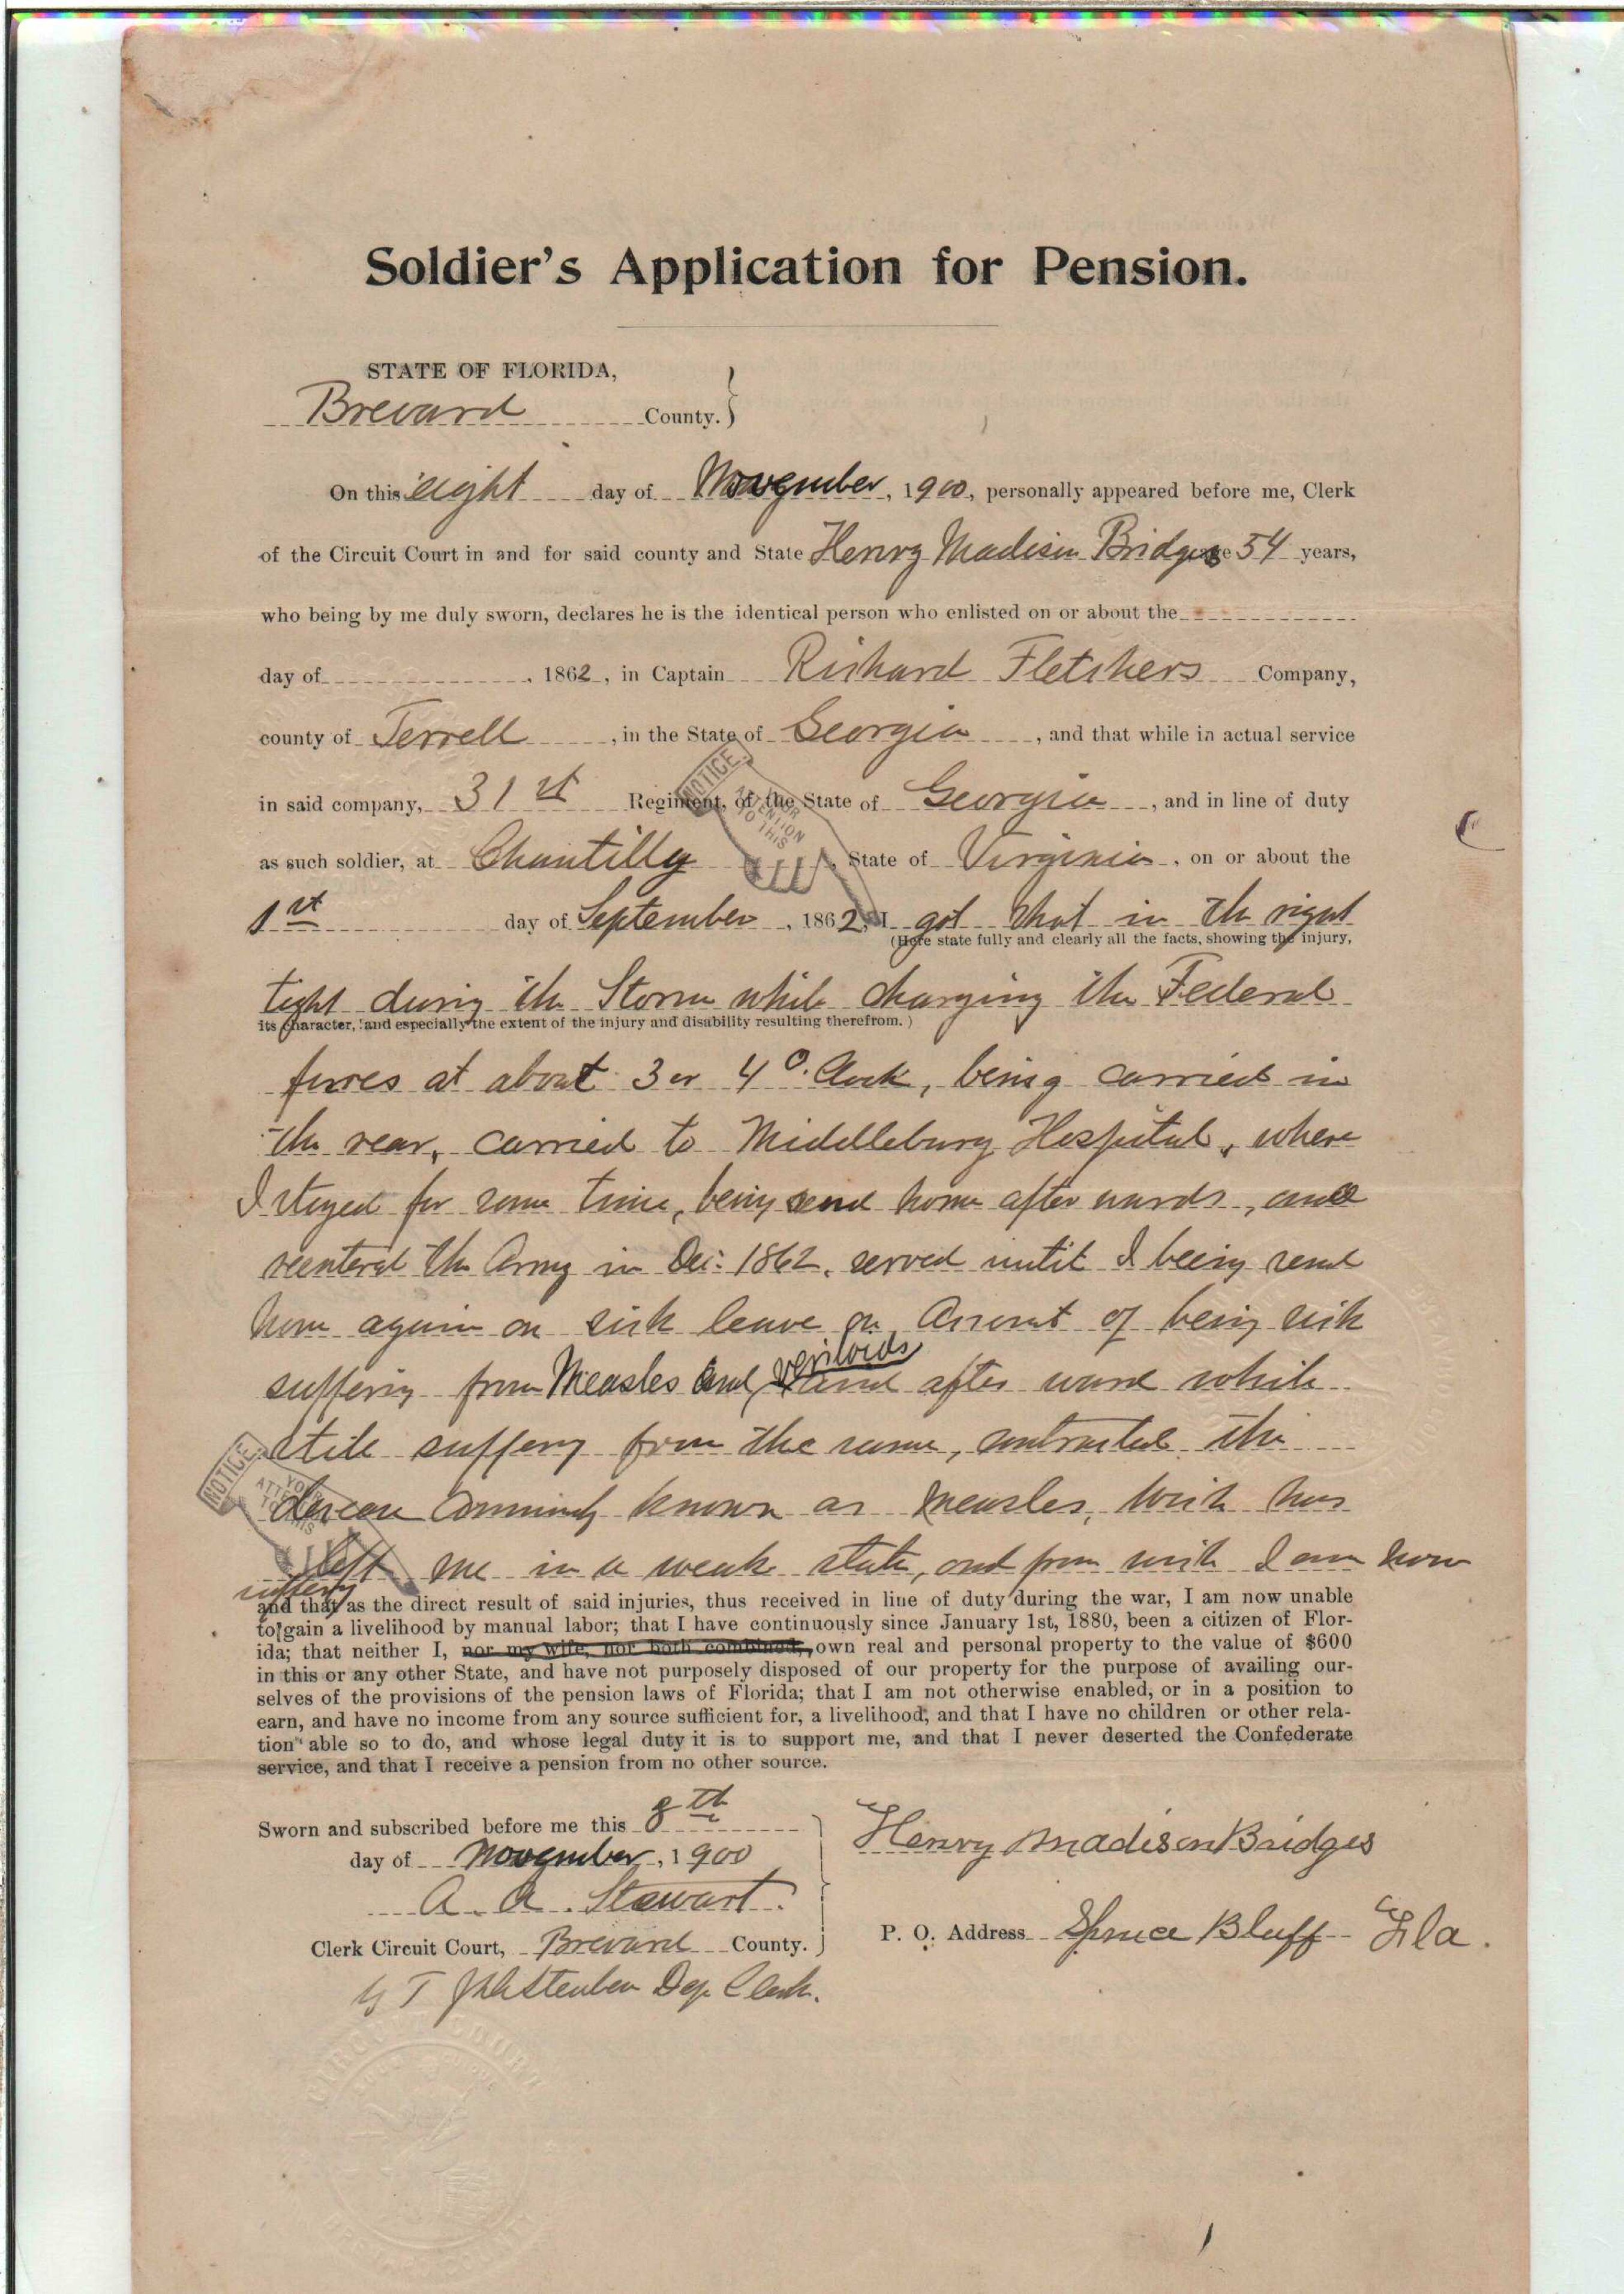 Soldier's Application for Pension.
STATE OF FLORIDA,
Brevard County. }
On this eight day of November, 1900, personally appeared before me, Clerk
of the Circuit Court in and for said county and State Henry Madison Bridges 54 years,
who being by me duly sworn, declares he is the identical person who enlisted on or about the
day of , 1862, in Captain Richard Fletchers Company,
county of Terrell, in the State of Georgia, and that while in actual service
in said company, 31st Regiment, of the State of Georgia, and in line of duty
NOTICE.
YOUR
ATTENTION
TO THIS
as such soldier, at Chantilly State of Virginia, on or about the
1st day of September, 1862, I got shot in th right
(Here state fully and clearly all the facts, showing the injury,
tight during th Storm while charging the Federal
its character, and especially the extent of the injury and disability resulting therefrom.)
forces at about 3 or 4 O. Clock, being carried in
th rear, carried to Middleburg Hospital, where
I stayed for some time, being send home after wards, and
reentered th Army in Dec. 1862. served until I being send
home again on sick leave on Account of being sick
suffering from Measles and veriloids and after ward while
still suffery from the same, contracted the
NOTICE.
YOUR
ATTENTION
TO THIS
known as measles, wich has
left me in a weak state, and from wich I am now
suffery
and that as the direct result of said injuries, thus received in line of duty during the war, I am now unable
to gain a livelihood by manual labor; that I have continuously since January 1st, 1880, been a citizen of Flor-
ida; that neither I, nor my wife, nor both combined, own real and personal property to the value of $600
in this or any other State, and have not purposely disposed of our property for the purpose of availing our-
selves of the provisions of the pension laws of Florida; that I am not otherwise enabled, or in a position to
earn, and have no income from any source sufficient for, a livelihood, and that I have no children or other rela-
tion able so to do, and whose legal duty it is to support me, and that I never deserted the Confederate
service, and that I receive a pension from no other source.
Sworn and subscribed before me this 8th
day of November, 1900
A. A. Stewart.
Clerk Circuit Court, Brevard County. }
Dep. Clerk.
Henry Madison Bridges
P. O. Address Spruce Bluff Fla.